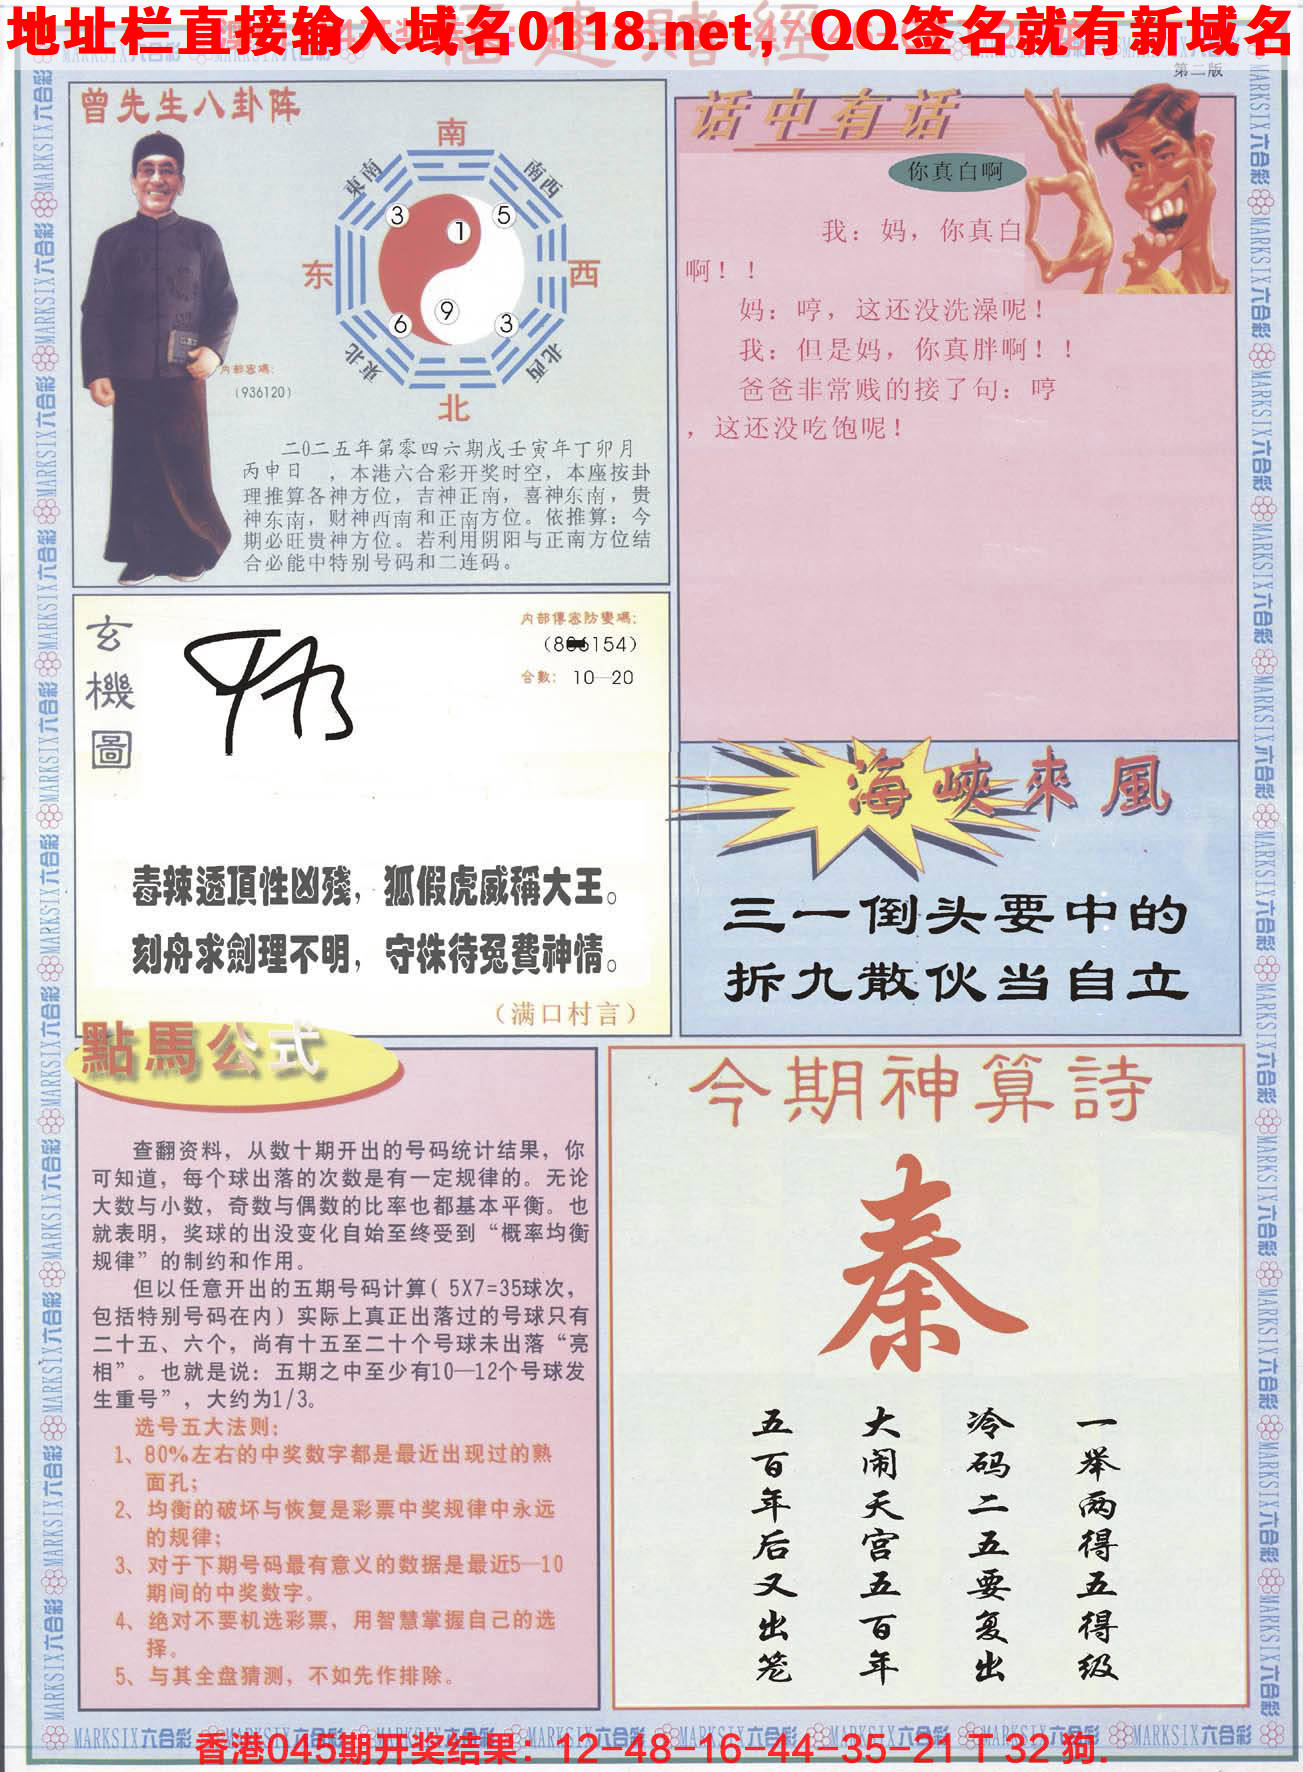 地址栏直接输入域名0118.net，QQ签名就有新域名
第二版
曾先生八卦阵
南
東南
南西
3
5
1
东
西
9
6
3
東北
北西
北
内部密碼：
（936120）
二0二五年第零四六期戊壬寅年丁卯月
丙申日　，本港六合彩开奖时空，本座按卦
理推算各神方位，吉神正南，喜神东南，贵
神东南，财神西南和正南方位。依推算：今
期必旺贵神方位。若利用阴阳与正南方位结
合必能中特别号码和二连码。
话中有话
你真白啊
我：妈，你真白
啊！！
妈：哼，这还没洗澡呢！
我：但是妈，你真胖啊！！
爸爸非常贱的接了句：哼
，这还没吃饱呢！
玄機圖
内部傳密防變碼：
合數：10—20
毒辣透頂性凶殘，狐假虎威稱大王。
刻舟求劍理不明，守株待兔費神情。
（满口村言）
海峽來風
三一倒头要中的
拆九散伙当自立
點馬公式
查翻资料，从数十期开出的号码统计结果，你
可知道，每个球出落的次数是有一定规律的。无论
大数与小数，奇数与偶数的比率也都基本平衡。也
就表明，奖球的出没变化自始至终受到“概率均衡
规律”的制约和作用。
但以任意开出的五期号码计算（5X7=35球次，
包括特别号码在内）实际上真正出落过的号球只有
二十五、六个，尚有十五至二十个号球未出落“亮
相”。也就是说：五期之中至少有10—12个号球发
生重号”，大约为1/3。
选号五大法则：
1、80%左右的中奖数字都是最近出现过的熟
面孔；
2、均衡的破坏与恢复是彩票中奖规律中永远
的规律；
3、对于下期号码最有意义的数据是最近5—10
期间的中奖数字。
4、绝对不要机选彩票，用智慧掌握自己的选
择。
5、与其全盘猜测，不如先作排除。
今期神算詩
秦
一举两得五得级
冷码二五要复出
大闹天宫五百年
五百年后又出笼
MARKSIX六合彩
香港045期开奖结果：12-48-16-44-35-21 T 32 狗.